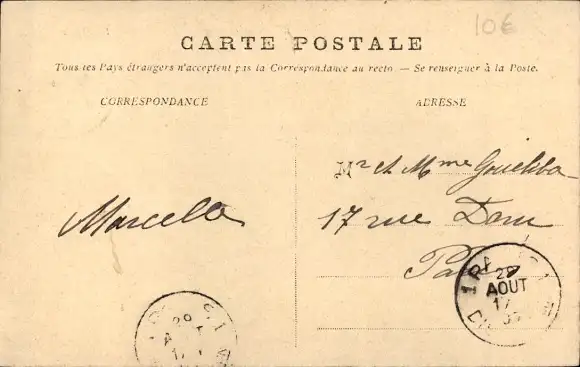 10€
CARTE POSTALE
Tous les Pays étrangers n'acceptent pas la Correspondance au recto — Se renseigner à la Poste.
CORRESPONDANCE
ADRESSE
Mr et Mme
Marcelle
17 rue Daru
Paris
29
AOUT
17
29